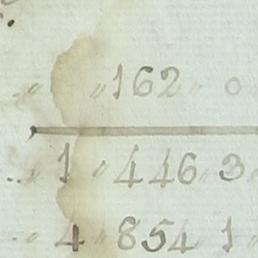 " " 162 " 0
" 1 " 446 " 3
" 4 " 854 " 1